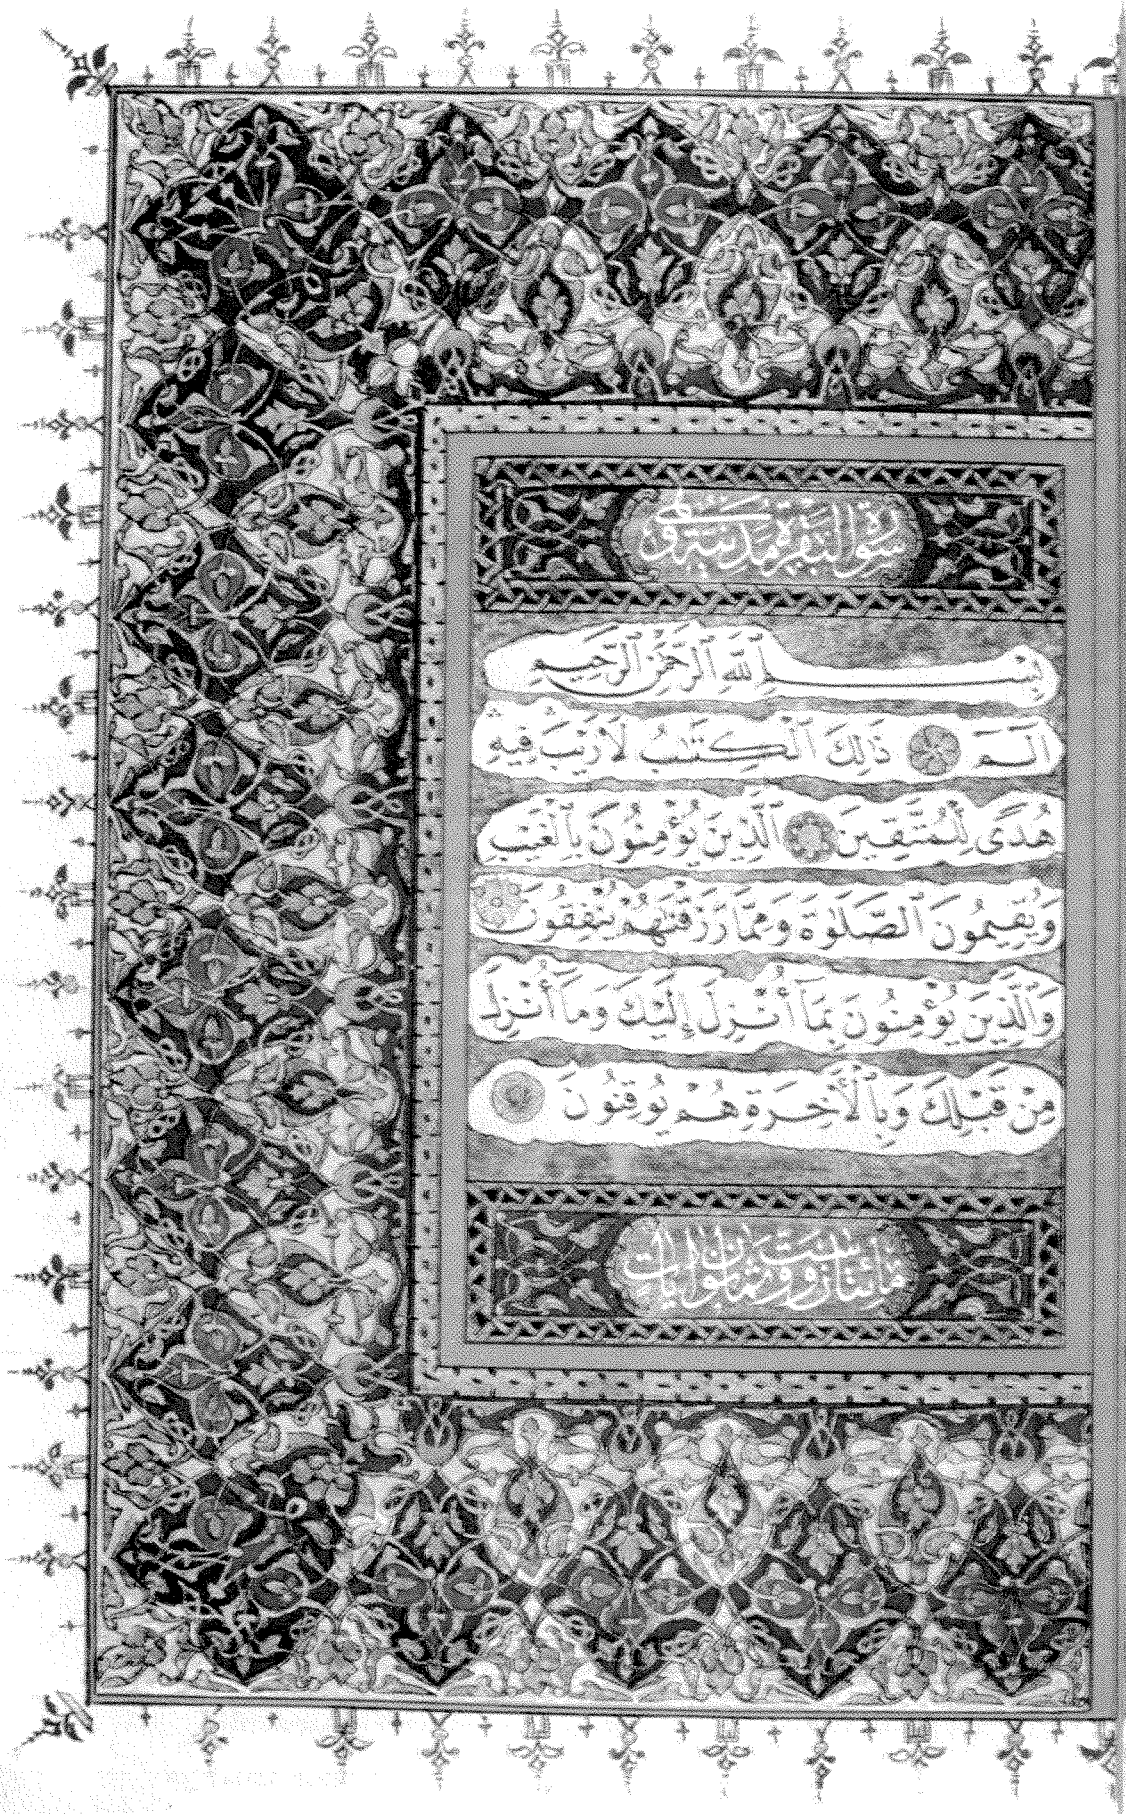 سورة البقرة مدنية وهي
بِسْمِ ٱللَّهِ ٱلرَّحْمَٰنِ ٱلرَّحِيمِ
الٓمٓ ذَٰلِكَ ٱلْكِتَٰبُ لَا رَيْبَ فِيهِ
هُدًى لِّلْمُتَّقِينَ ٱلَّذِينَ يُؤْمِنُونَ بِٱلْغَيْبِ
وَيُقِيمُونَ ٱلصَّلَوٰةَ وَمِمَّا رَزَقْنَٰهُمْ يُنْفِقُونَ
وَٱلَّذِينَ يُؤْمِنُونَ بِمَآ أُنْزِلَ إِلَيْكَ وَمَآ أُنْزِلَ
مِنْ قَبْلِكَ وَبِٱلْأَخِرَةِ هُمْ يُوقِنُونَ
مائتان وست وثمانون ايات